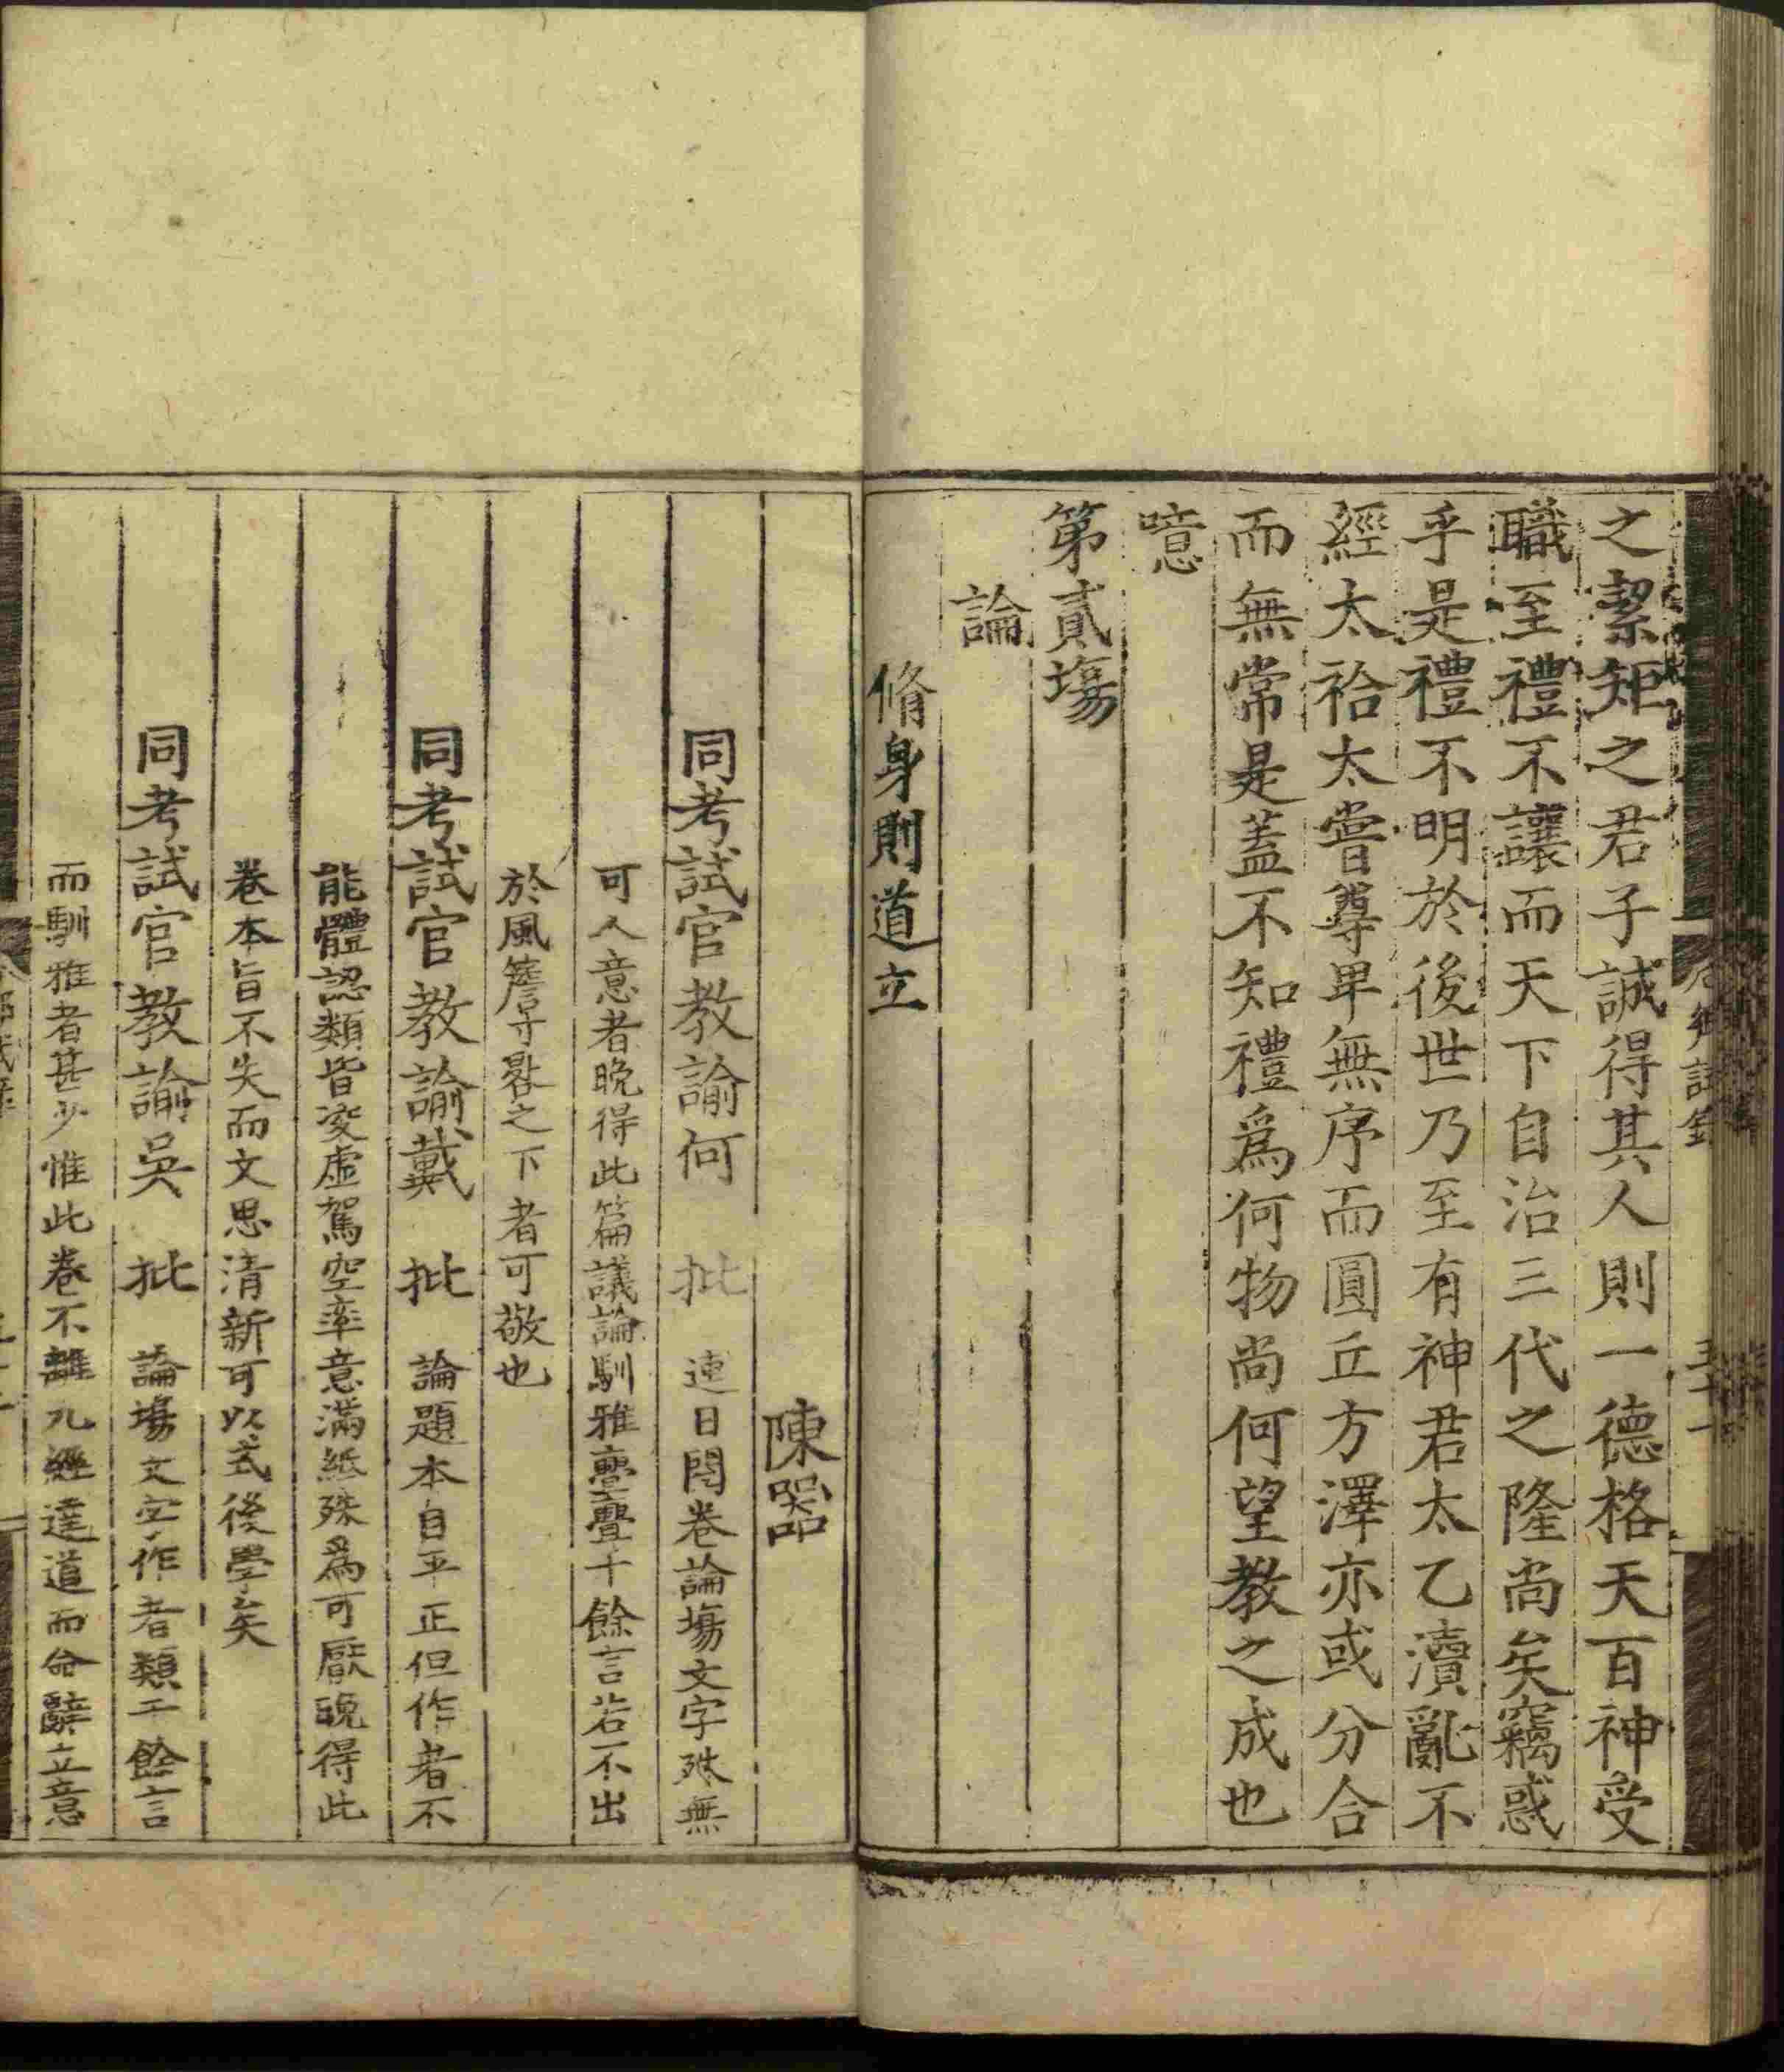 之絜矩之君子誠得其人則一德格天百神受
職至禮不讓而天下自治三代之隆尚矣竊惑
乎是禮不明於後世乃至有神君太乙瀆亂不
經太祫太嘗尊卑無序而圓丘方澤亦或分合
而無常是蓋不知禮爲何物尚何望教之成也
噫
第貳塲
論
脩身則道立
陳器
同考試官教諭何 批 連日閱卷論塲文字殊無
可人意者晚得此篇議論馴雅亹亹千餘言若不出
於風簷寸晷之下者可敬也
同考試官教諭戴 批 論題本自平正但作者不
能體認類皆凌虛駕空率意滿紙殊爲可厭晚得此
卷本旨不失而文思清新可以式後學矣
同考試官教諭吳 批 論塲文字作者類千餘言
而馴雅者甚少惟此卷不離九經達道而命辭立意